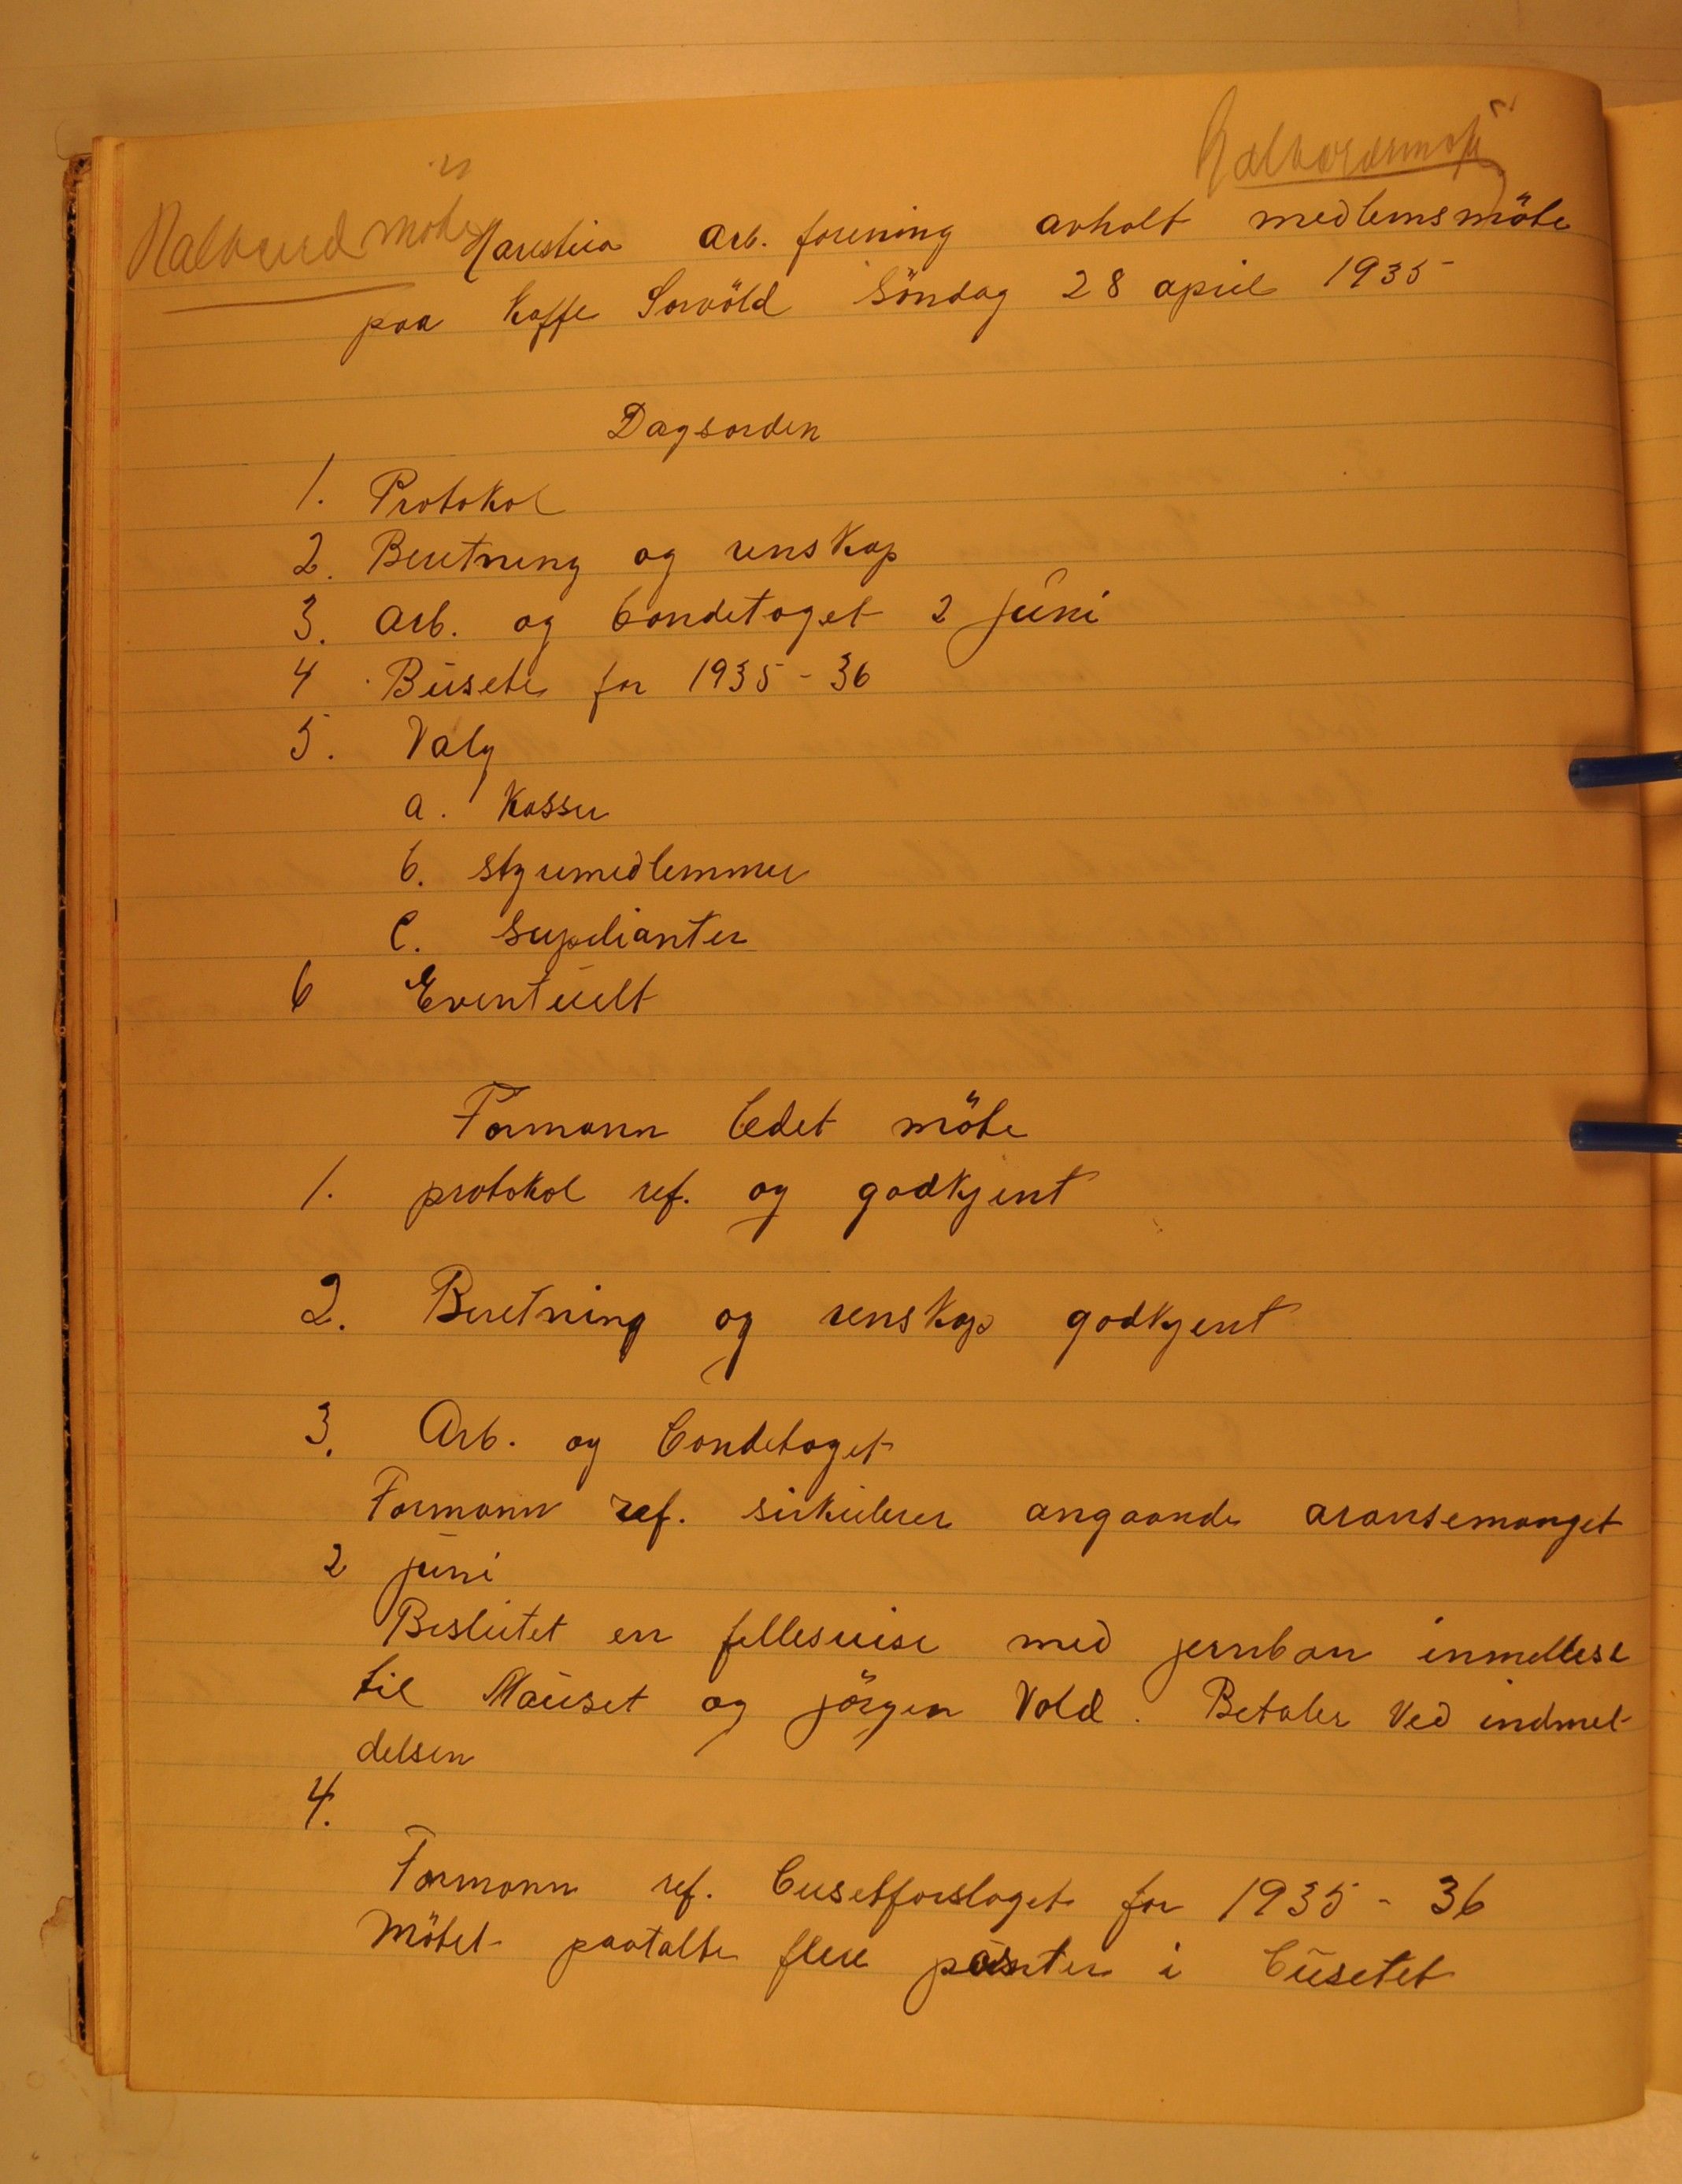 Halvaarsmöte
Halvaarsmöte
Harestua arb. forening avholt medlemsmöte
paa Kaffe Sorvöld Söndag 28 april 1935
Dagsorden
1. Protokol
2. Beretning og renskap
3. arb. og bondetoget 2 juni
4 Busete for 1935 - 36
5. Valg
a. Kasser
b. styremedlemmer
c. suplianter
6 Eventuelt
Formann ledet möte
1. protokol ref. og godkjent
2. Beretning og renskap godkjent
3. Arb. og bondetoget
Formann ref. sirkulerer angaande aransemanget
2 juni
Beslutet en fellesreise med jernban inmellese
til Mauset og jörgen Vold. Betaler Ved indmel-
delsen
4.
Formann ref. busetforslaget for 1935 - 36
Mötet paatalte flere poster i busetet